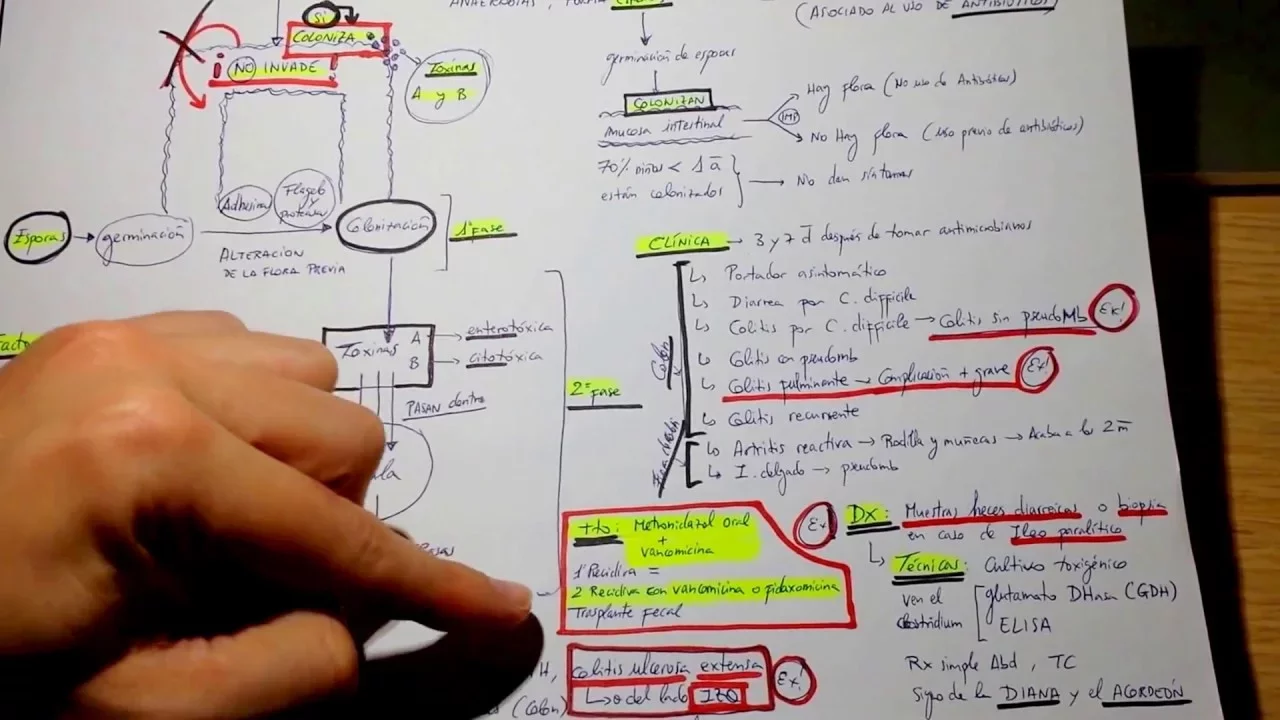 ANAEROBIAS, FORMA
(ASOCIADO AL USO DE ANTIBIÓTICOS)
SI
COLONIZA
¡NO INVADE!
Toxinas
A y B
Adhesina
Flagelo
y
proteasas
Esporas
germinación
ALTERACIÓN
DE LA FLORA PREVIA
Colonización
1ª FASE
Toxinas A
B
enterotóxica
citotóxica
PASAN dentro
2ª FASE
germinación de esporas
COLONIZAN
Mucosa intestinal
IMP
Hay flora (No uso de Antibióticos)
No Hay flora (uso previo de antibióticos)
70% niños < 1 a
están colonizados
No dan síntomas
CLÍNICA → 3 y 7 d después de tomar antimicrobianos
Colon
Portador asintomático
Diarrea por C. difficile
Colitis por C. difficile → Colitis sin pseudoMb Ex!
Colitis con pseudomb
Colitis fulminante → Complicación + grave Ex!
Colitis recurrente
Artritis reactiva → Rodilla y muñecas → Acaba a los 2 m
I. delgado → pseudomb
tto: Metronidazol oral
+
vancomicina
Ex!
1ª Recidiva =
2 Recidiva con vancomicina o fidaxomicina
Trasplante fecal
Dx: Muestras heces diarreicas o biopsia
en caso de Ileo paralítico
Técnicas: Cultivo toxigénico
ven el
clostridium
glutamato DHasa (GDH)
ELISA
Rx simple Abd, TC
Signo de la DIANA y el ACORDEÓN
Colitis ulcerosa extensa
↳ o del lado IZQ
Ex!
(Colon)